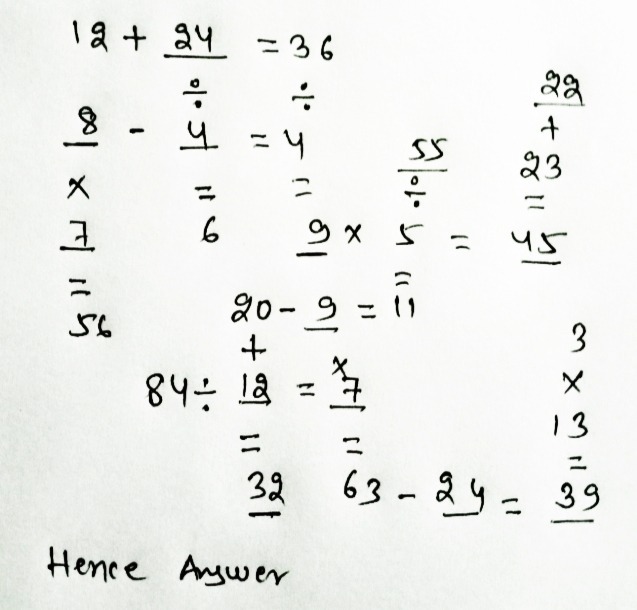 12 + 24 = 36
÷ ÷ 22
8 - 4 = 4 55 +
× = = ÷ 23
7 6 9 × 5 = 45
= =
56 20 - 9 = 11
+ × 3
84 ÷ 12 = 7 ×
= = 13
=
32 63 - 24 = 39
Hence Answer